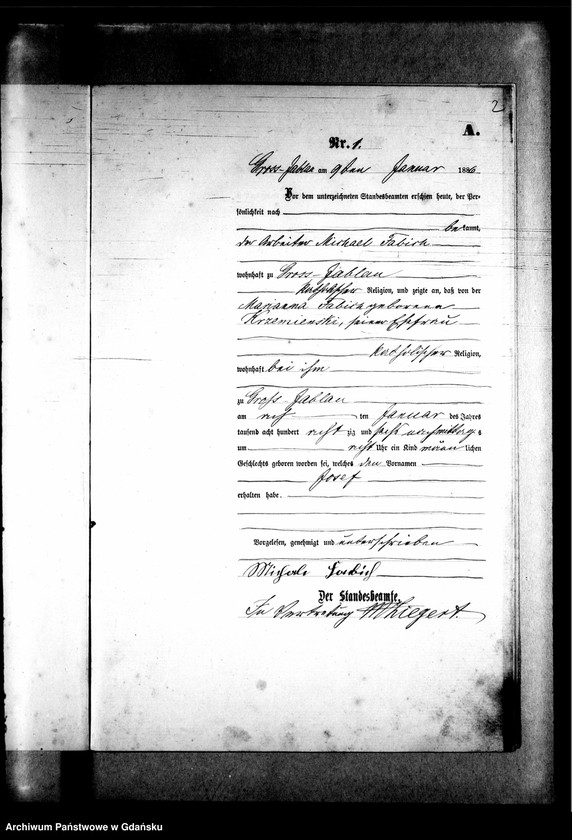 2
A.
Nr. 1.
Gross-Jablau am 9ten Januar 1886
Vor dem unterzeichneten Standesbeamten erschien heute, der Per-
sönlichkeit nach
bekannt,
der Arbeiter Michael Fabich
wohnhaft zu Gross-Jablau
katholischer Religion, und zeigte an, daß von der
Marianna Fabich geborene
Krzemienski, seiner Ehefrau
katholischer Religion,
wohnhaft bei ihm
zu Gross-Jablau
am ten Januar des Jahres
tausend acht hundert acht zig und sechs nachmittags
um acht Uhr ein Kind männlichen
Geschlechts geboren worden sei, welches den Vornamen
Josef
erhalten habe.
Vorgelesen, genehmigt und unterschrieben
Fabich
Der Standesbeamte.
In Vertretung
Archiwum Państwowe w Gdańsku